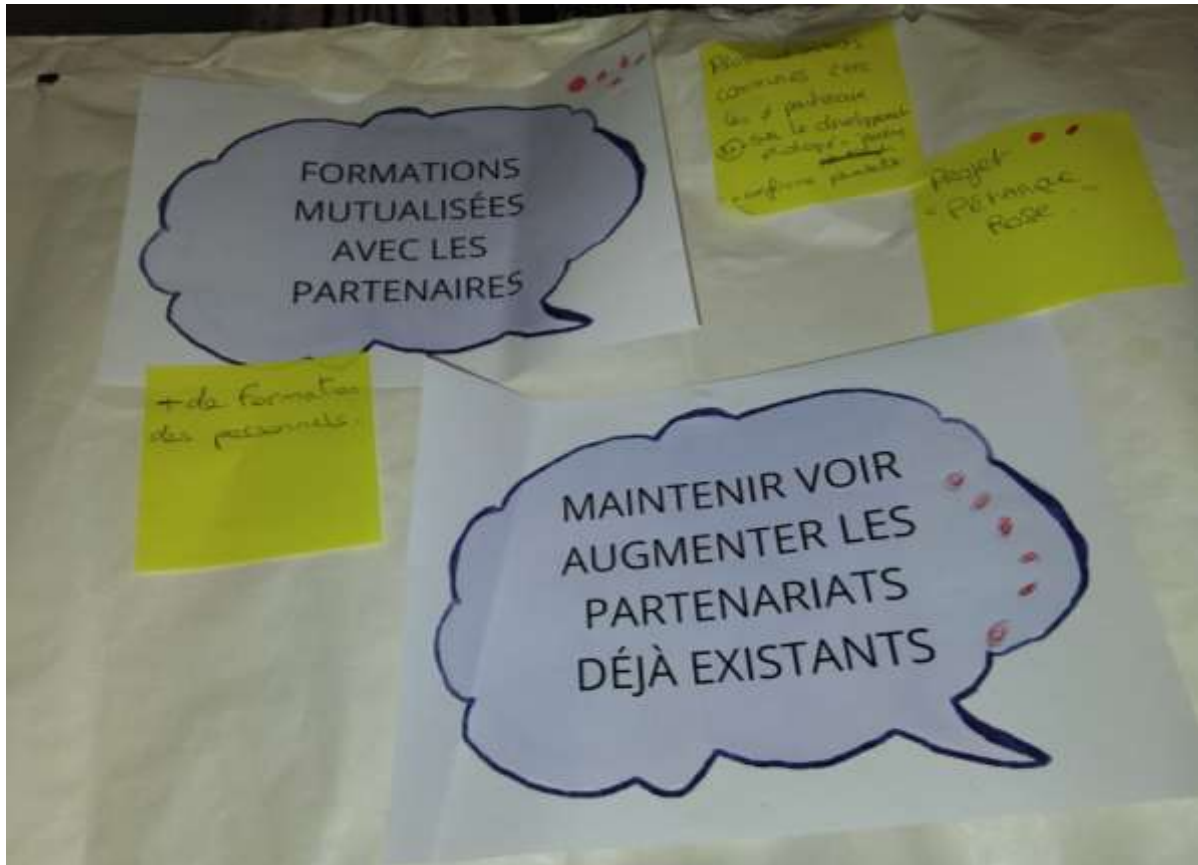 FORMATIONS
MUTUALISÉES
AVEC LES
PARTENAIRES
communes
les ≠
sur le
Projet
- PÉTANQUE
ROSE
+ de Formation
des personnels.
MAINTENIR VOIR
AUGMENTER LES
PARTENARIATS
DÉJÀ EXISTANTS